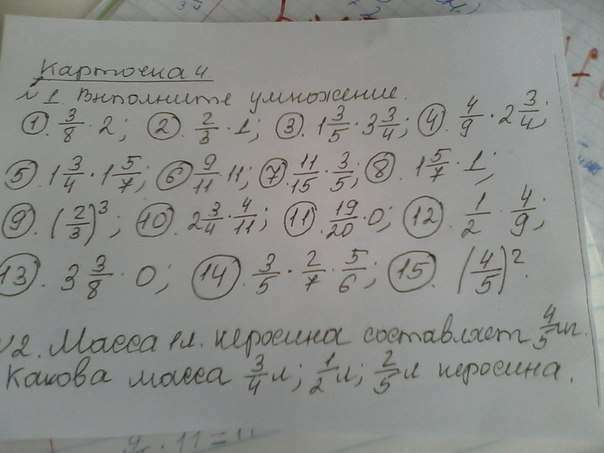 Карточка 4
№1 Выполните умножение.
1. 3/8 · 2; 2. 2/3 · 1; 3. 1 3/5 · 3 3/4; 4. 4/9 · 2 3/4;
5. 1 3/4 · 1 5/7; 6 9/11 · 11; 7 11/15 · 3/5; 8. 1 5/7 · 1;
9. (2/3)³; 10. 2 3/4 · 4/11; 11. 19/20 · 0; 12. 1/2 · 4/9;
13. 3 3/8 · 0; 14. 3/5 · 2/7 · 5/6; 15. (4/5)².
№2. Масса 1л. керосина составляет 4/5 кг.
Какова масса 3/4 л; 1/2 л; 2/5 л керосина.
· 11 = 11